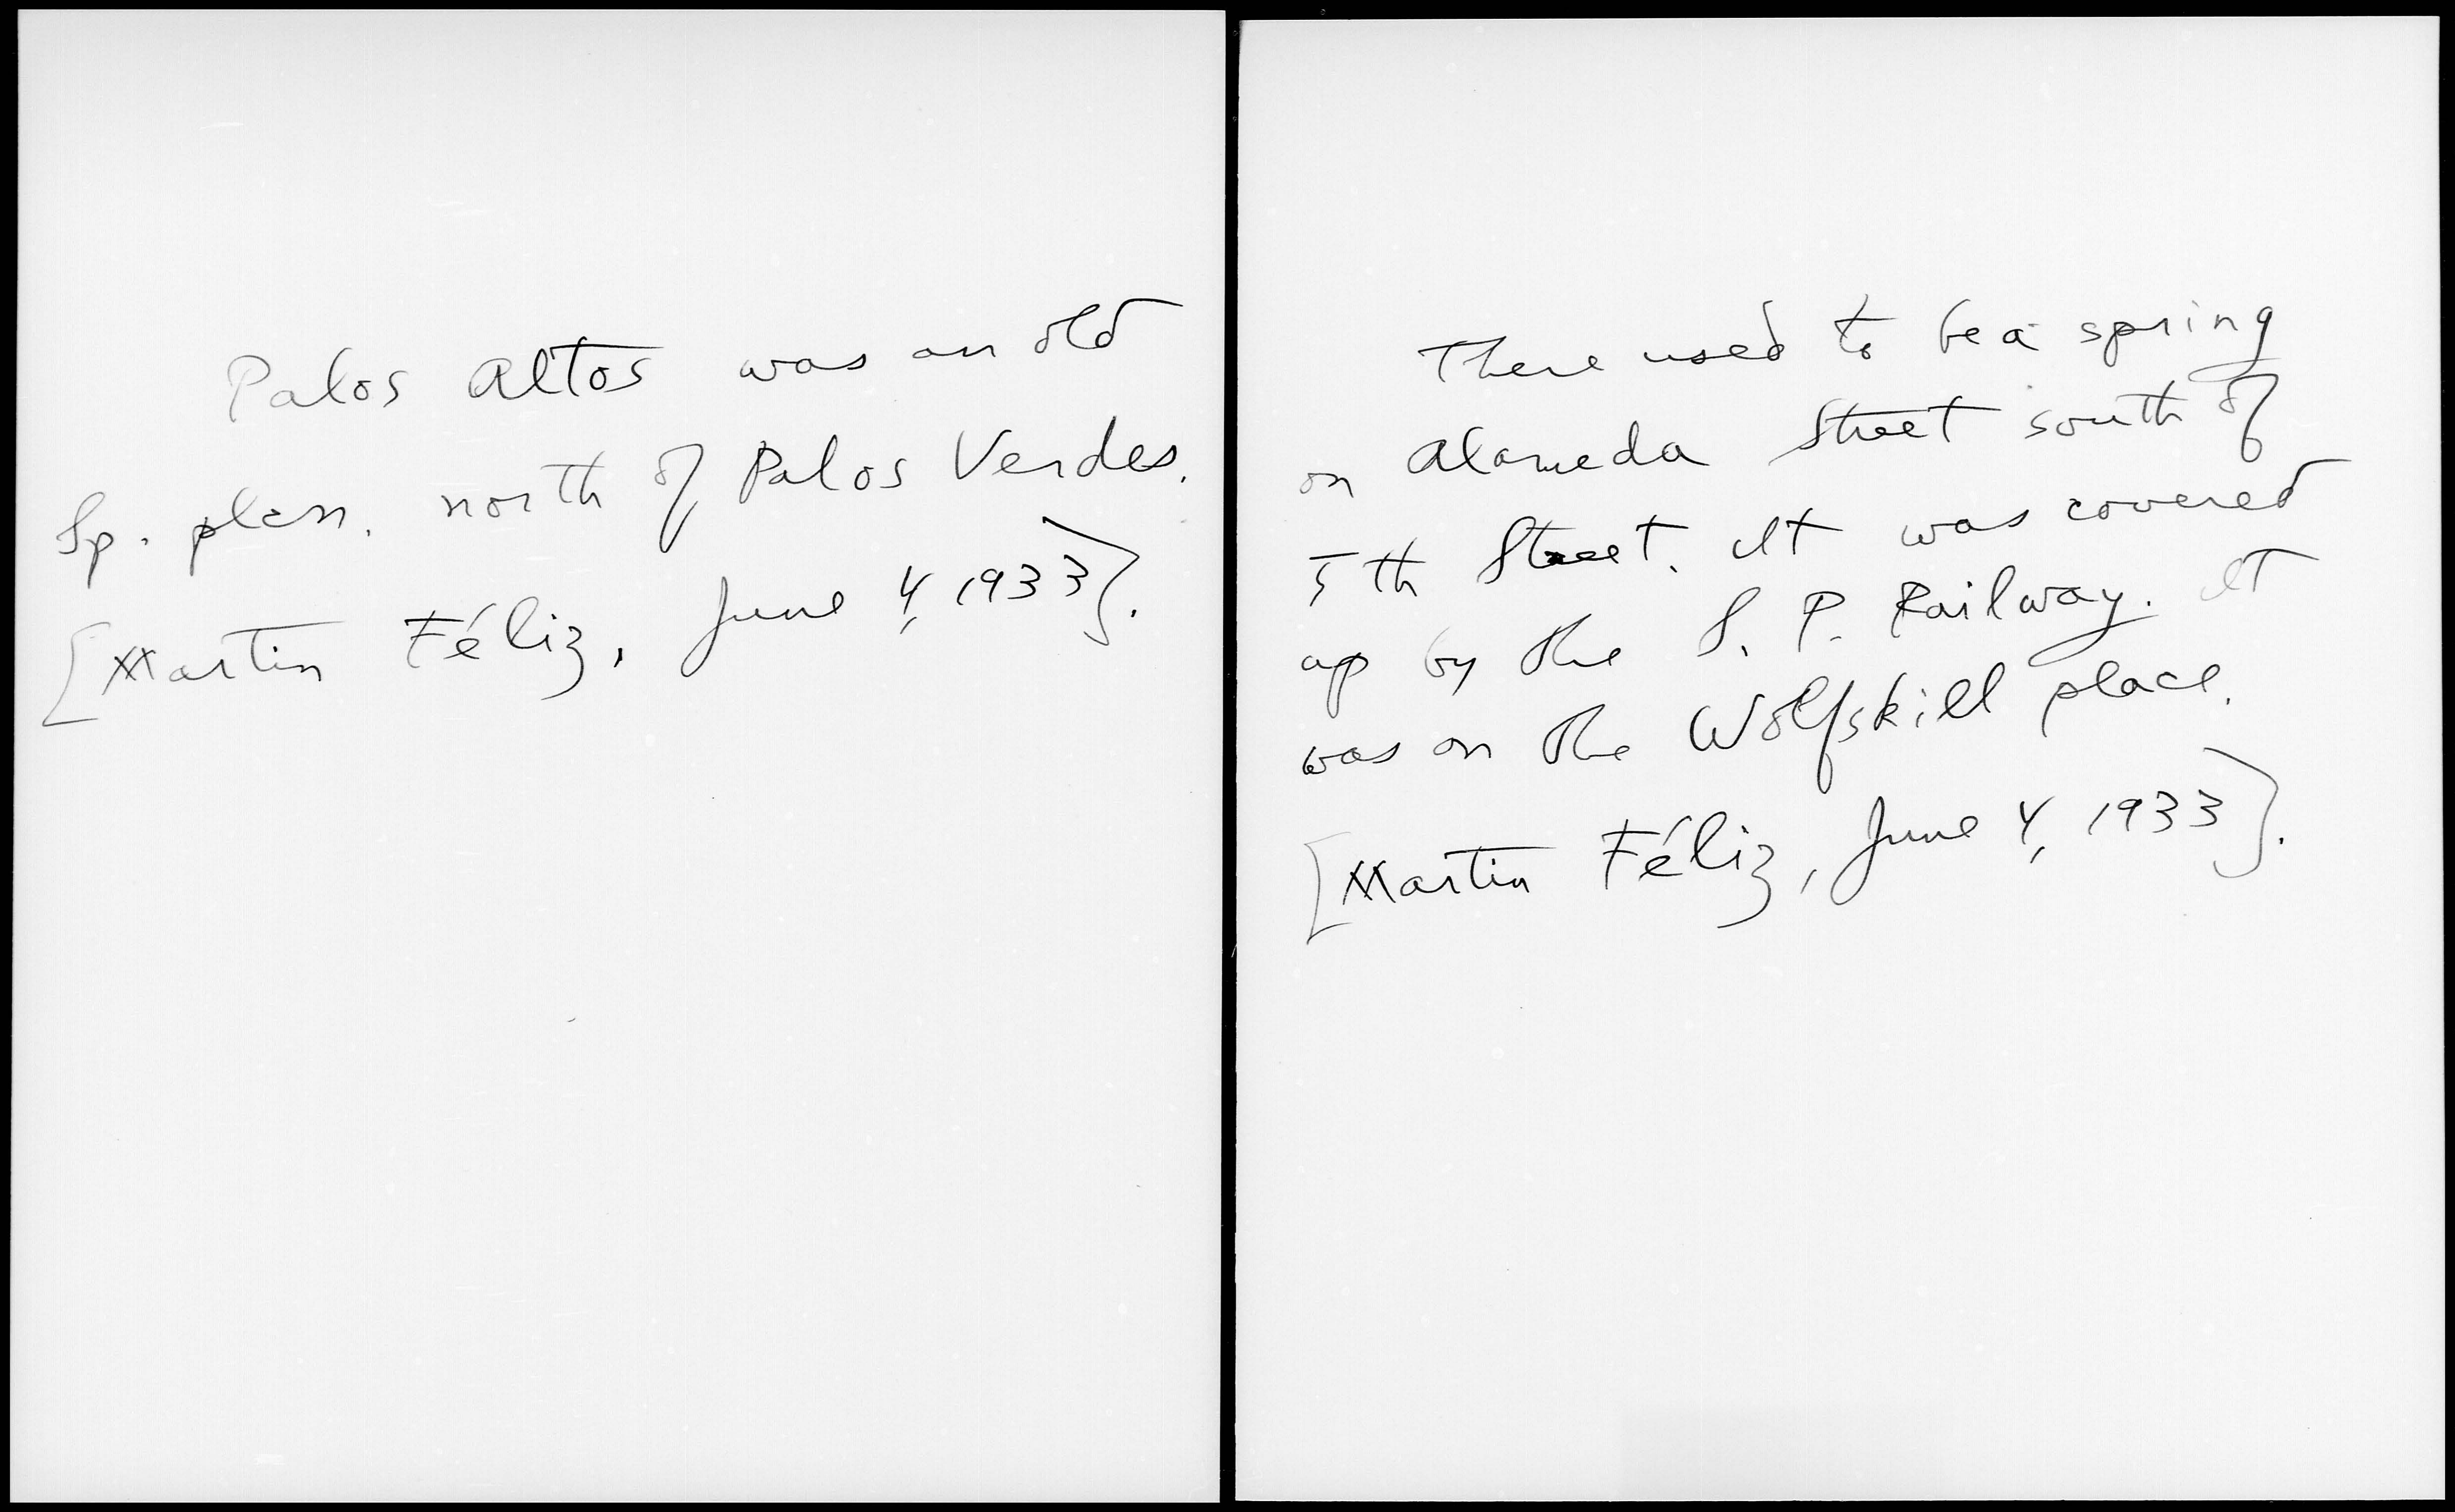 Palos Altos was an old
Sp. plcn. north of Palos Verdes.
[Martin Féliz, June 4, 1933].
There used to be a spring
on Alameda Street south of
5th Street. It was covered
up by the S. P. Railway. It
was on the Wolfskill place.
[Martin Féliz, June 4, 1933].